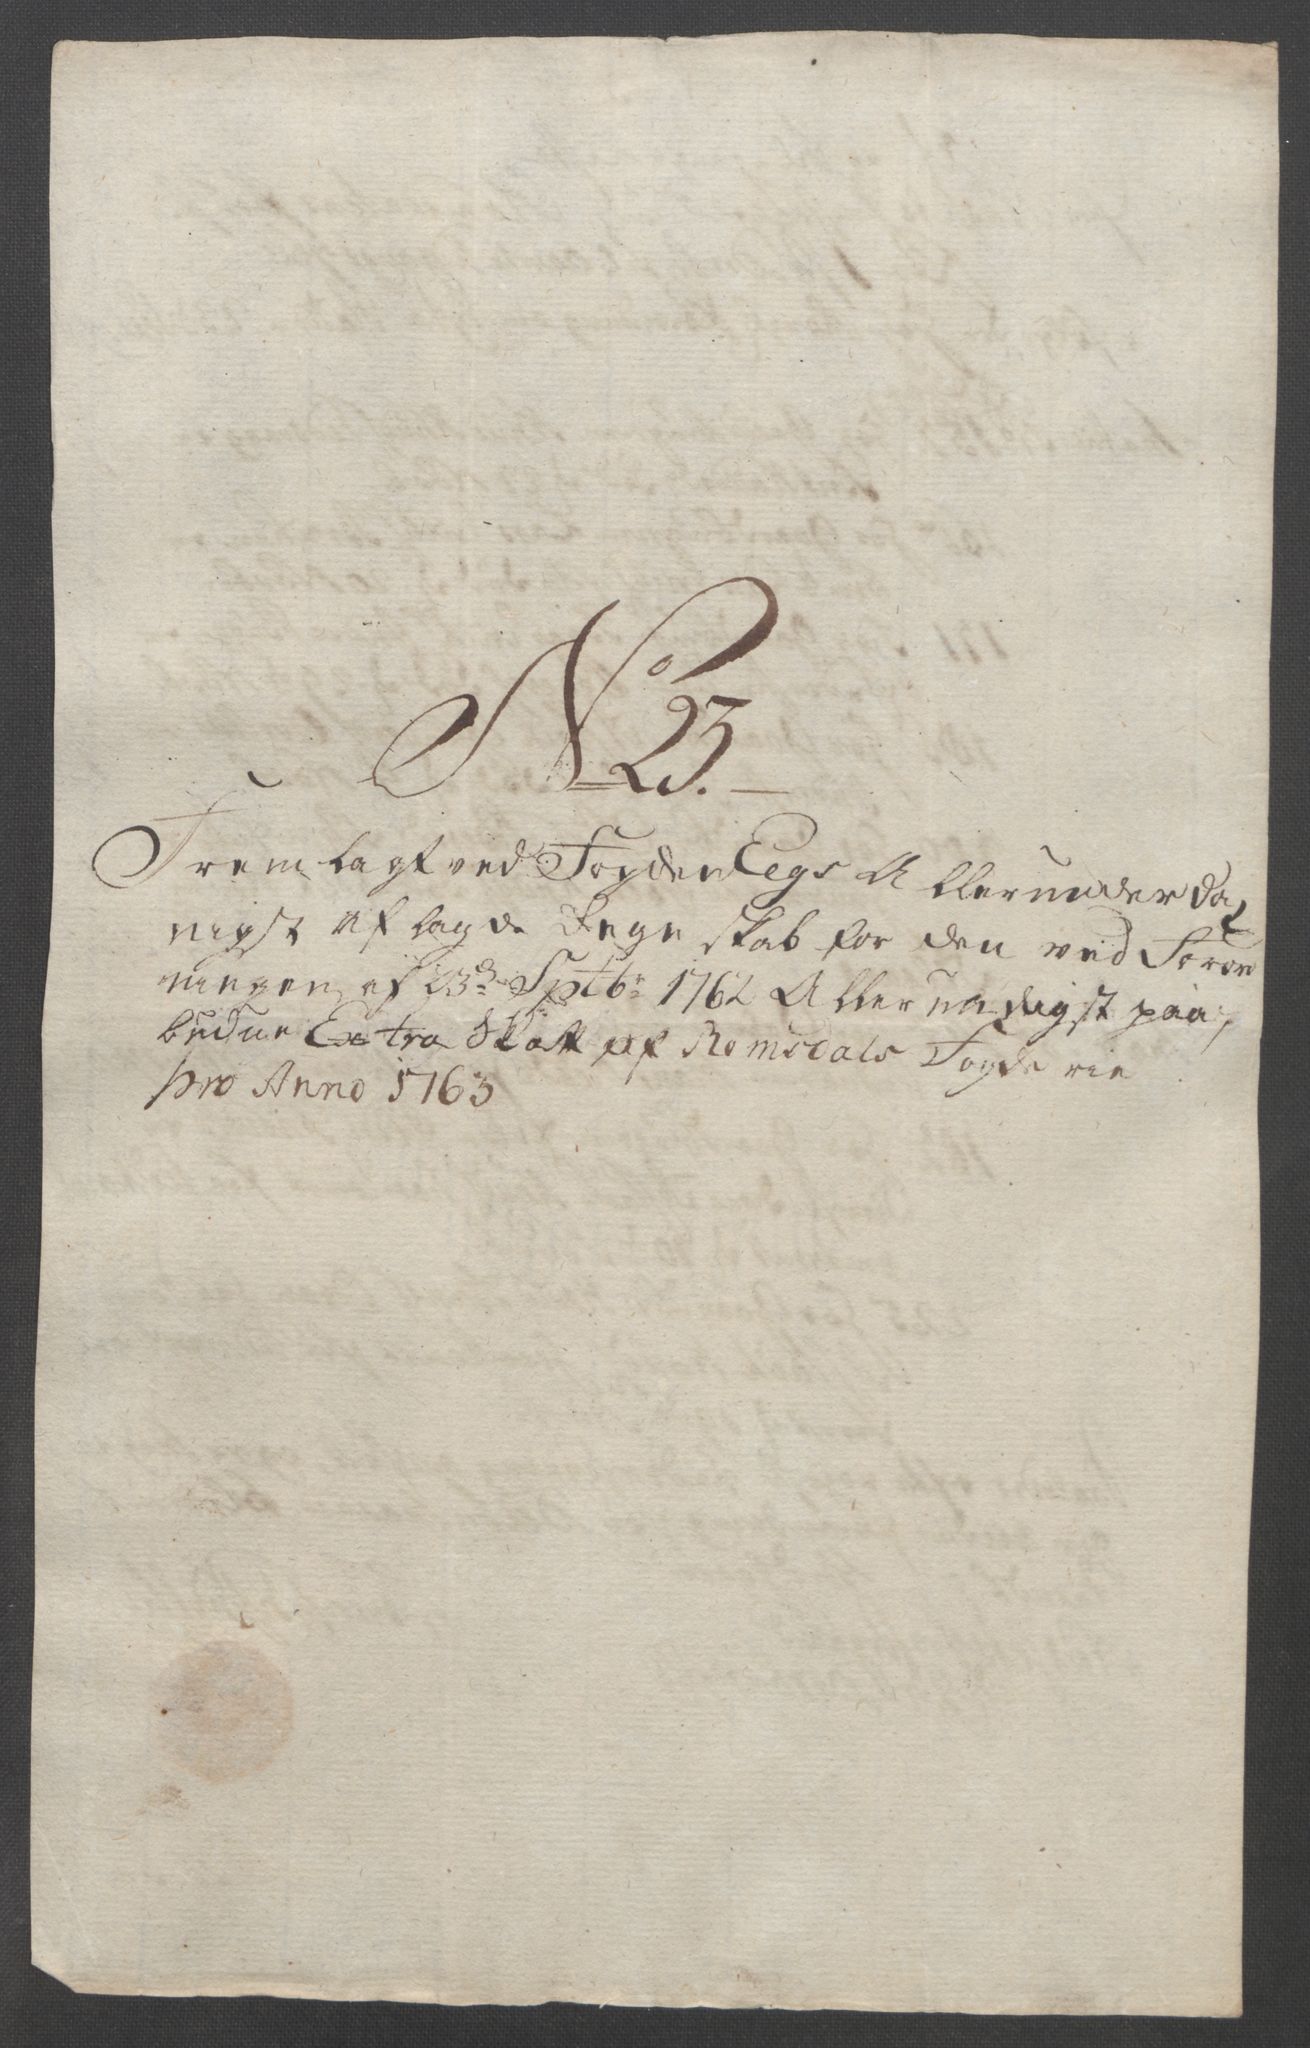 No 23.
Fremlagt ved Fogden Eegs Allerunderda,
nigst aflagde Regnskab for den ved Foror
ningen af 23de Sptbr 1762 Allernadigst paa,
budne Extra Skatt af Romsdals Fogderie
pro Anno 1763